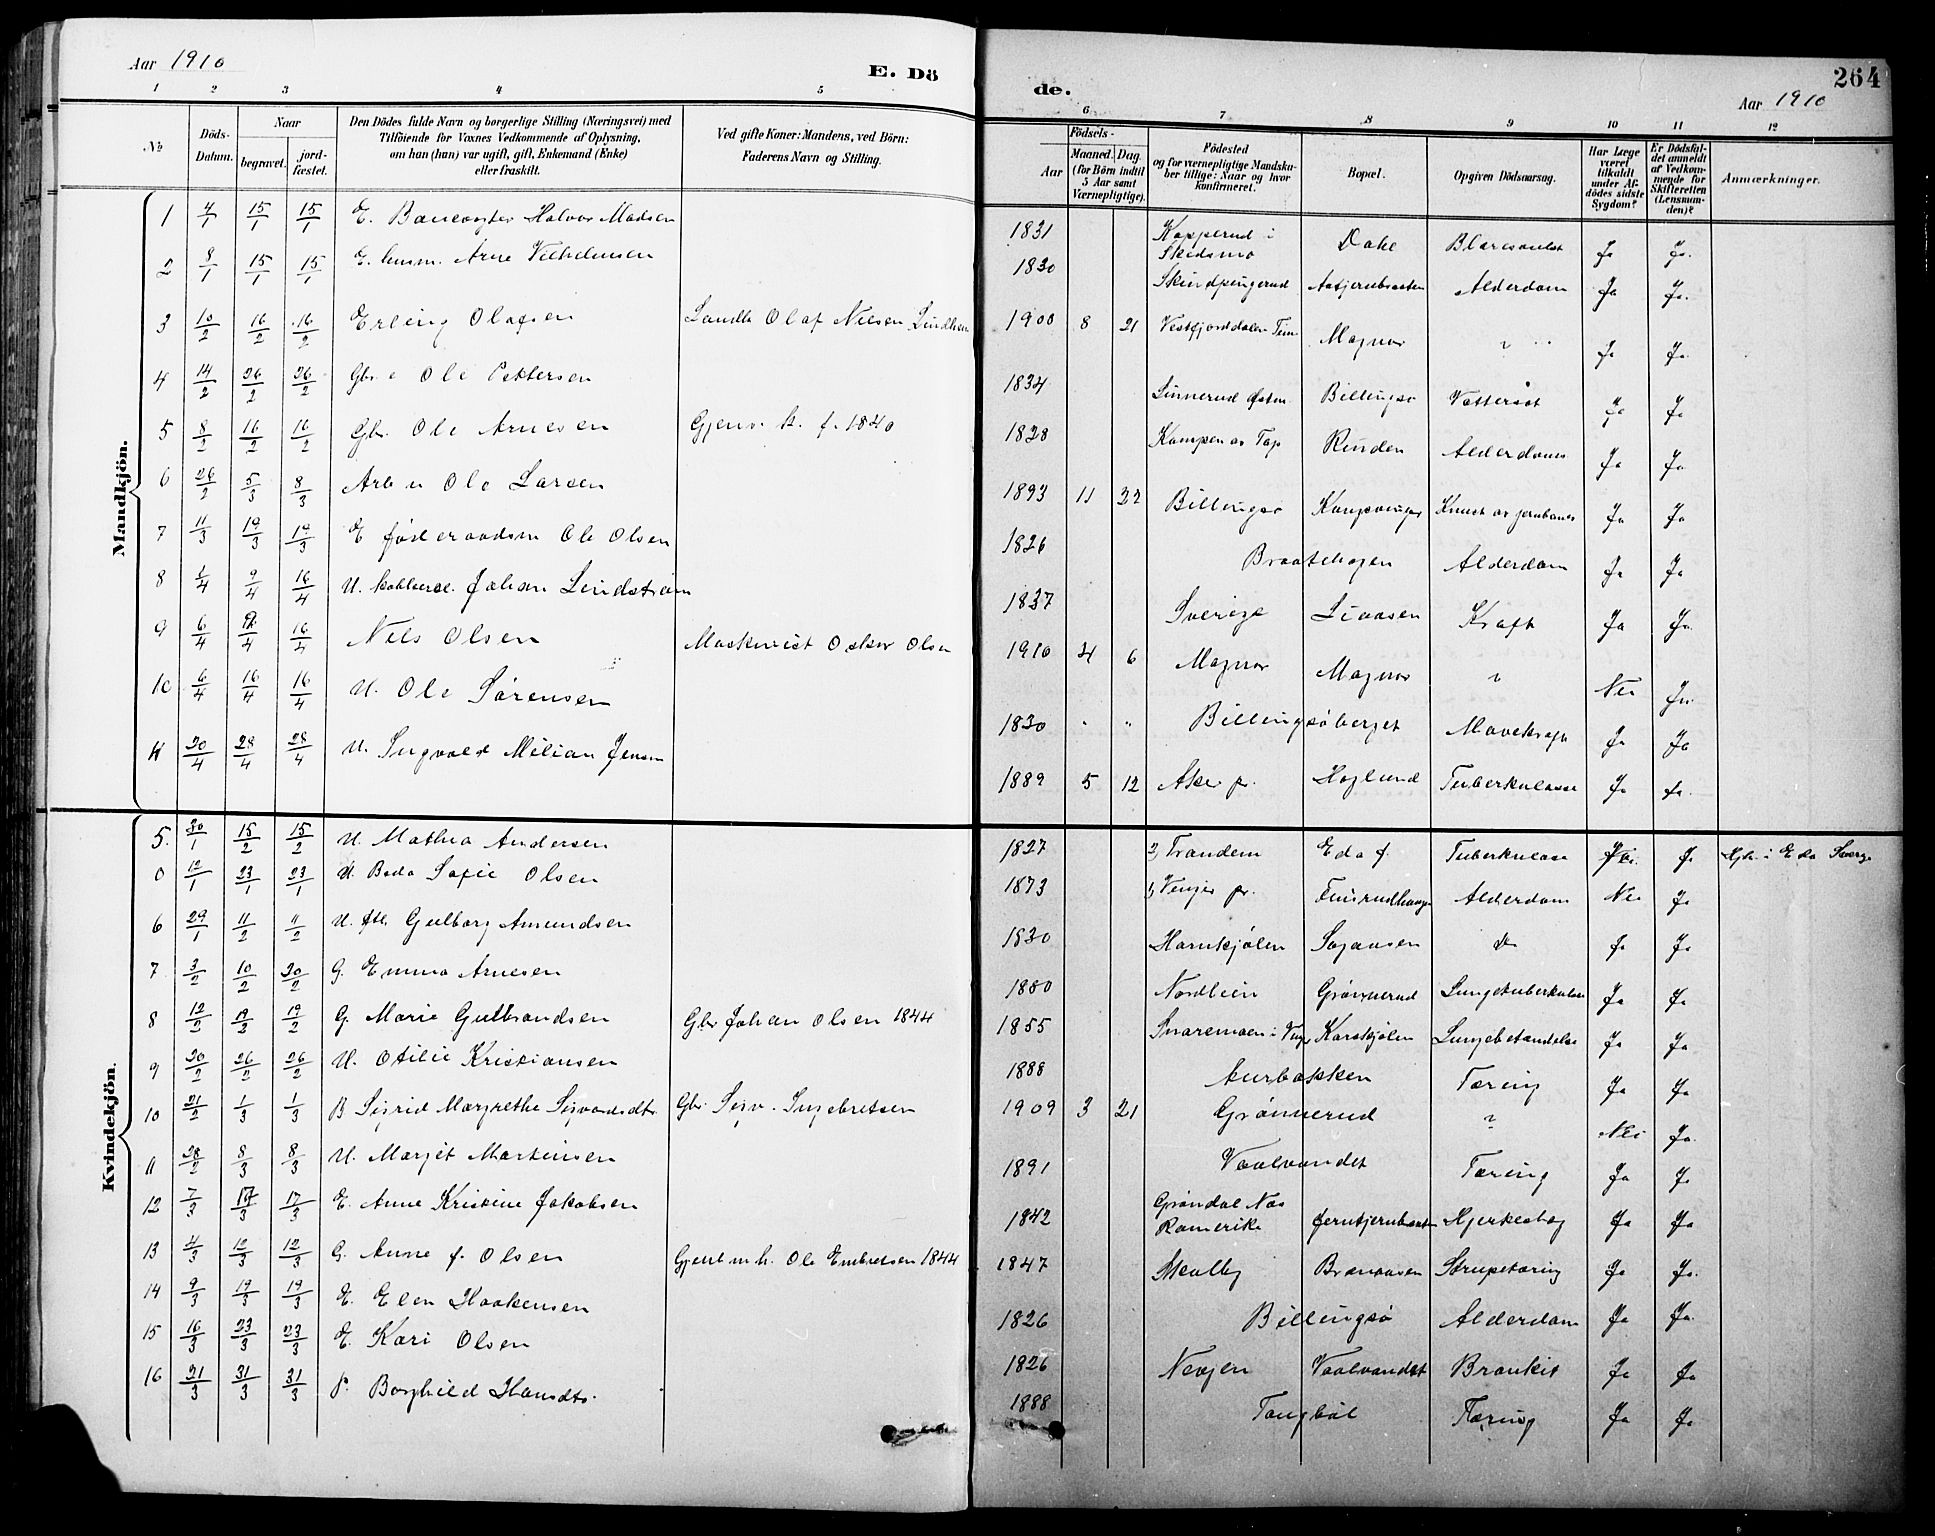 Aar 1910
E. Dö
de.
264
Aar 1910
1 2 3 4 5 6 7 8 9 10 11 12
No
Döds-Datum.
Naar
begravet.
jord-fæstet.
Den Dödes fulde Navn og borgerlige Stilling (Næringsvei) med
Tilföiende for Voxnes Vedkommende af Oplysning,
om han (hun) var ugift, gift, Enkemand (Enke)
eller fraskilt.
Ved gifte Koner: Mandens, ved Börn:
Faderens Navn og Stilling.
Födsels-
Aar
Maaned. Dag.
(for Börn indtil
5 Aar samt
Værnepligtige).
Födested
og for værnepligtige Mandsku-
ber tillige: Naar og hvor
konfirmeret.
Bopæl.
Opgiven Dödsaarsag.
Har Læge
været
tilkaldt
under Af-
dödes sidste
Sygdom?
Er Dödsfal-
det anmeldt
af Vedkom-
mende for
Skifteretten
(Lensman-
den)?
Anmærkninger.
Mandkjön.
1 4/1 15/1 15/1 E. Banevogter Halvor Madsen 1831 Kopperud i Skedsmo Dahl Ja Ja.
2 8/1 15/1 15/1 E. husm. Arne 1830 Alderdom Ja Ja.
3 10/2 16/2 16/2 Erling Olafsen Olaf Nilsen 1900 8 21 Vestfjorddalen Magnor " Ja Ja.
4 14/2 26/2 26/2 Gbr. e Ole Pettersen 1834 Billingsø Vattersot Ja Ja
5 8/2 16/2 16/2 Gbr. Ole Arnesen Gjenv. k. f. 1840 1828 Rinden Alderdom Ja Ja
6 26/2 5/3 8/3 Arb u Ole Larsen 1893 11 22 Billingsø Kongsvinger Knust av jernbanen Ja Ja
7 11/3 19/3 19/3 E føderaadsm Ole Olsen 1826 Braatehagen Alderdom Ja Ja
8 1/4 9/4 16/4 U. Johan Lindstrøm 1837 Sverige Liaasen Kræft Ja Ja.
9 6/4 16/4 Nils Olsen Maskinist Oskar Olsen 1910 4 6 Magnor Magnor " Nei Ja.
10 6/4 16/4 16/4 U. Ole Sørensen 1830 " " Billingsøberget Mavekræft Ja Ja
11 20/4 28/4 28/4 U. Ingvald Milian Jensen 1889 5 12 Aker pr. Haglund Tuberkulose Ja Ja.
Kvindekjön.
5. 30/1 15/2 15/2 U. Mathea Andersen 1827 2) Trandem Eda f. Tuberkulose Ja i Eda Sverge
0 12/1 23/1 23/1 U. Beda Sofie Olsen 1873 1) Vinger pr. Alderdom Nei Ja
6 29/1 11/2 11/2 U. Gulborg Amundsen 1830 Hornkjølen do Ja Ja
7 3/2 10/2 20/2 G. Emma Arnesen 1880 Nordbein Grønnerud Lungetuberkulose Ja Ja
8 12/2 19/2 19/2 G. Marie Gulbrandsen Gbr Johan Olsen 1844 1855 Snaremoen i Ving Karskjølen Lungebetændelse Ja Ja
9 20/2 26/2 26/2 U. Otilie Kristiansen 1888 Aurbakken Tæring Ja Ja
10 21/2 1/3 1/3 B Sigrid Margrethe Gbr. Sigv. Ingebretsen 1909 3 21 Grønnerud ? Nei Ja.
11 28/2 8/3 8/3 U. Margit Martinsen 1891 Vaalvandet Tæring Ja Ja
12 7/3 17/3 17/3 E. Anne Kristine Jakobsen 1842 Grøndal Nes Romerike Hjerteslag Ja Ja
13 4/3 12/3 12/3 G. Anne f. Olsen Ole Embretsen 1844 1847 Skulby Strupetæring Ja Ja.
14 9/3 19/3 19/3 E. Elen Haakensen 1826 Billingsø Alderdom Ja Ja.
15 16/3 23/3 23/3 E. Kari Olsen 1826 Nexjen Vaalvandet Bronkit Ja Ja
16 21/3 31/3 31/3 P. Borghild Hansdtr. 1888 Tangbøl Tæring Ja Ja